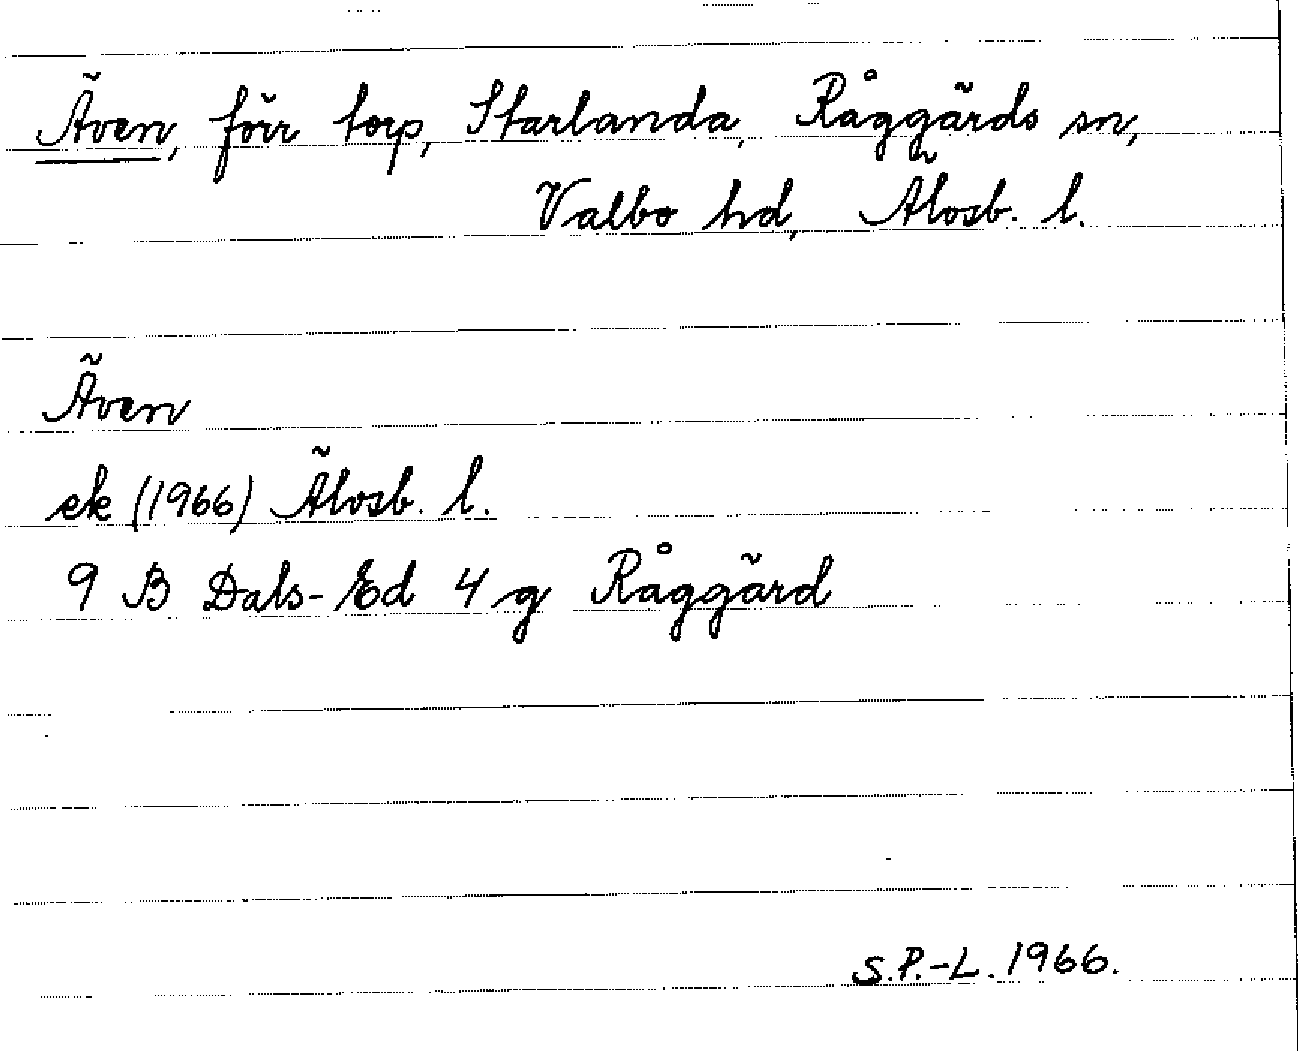 Även, förr torp, Starlanda, Råggärds sn,
Valbo hd, Älvsb. l.
Även
ek (1966) Älvsb. l.
9 B Dals-Ed 4 g Råggärd
S.P.-L. 1966.